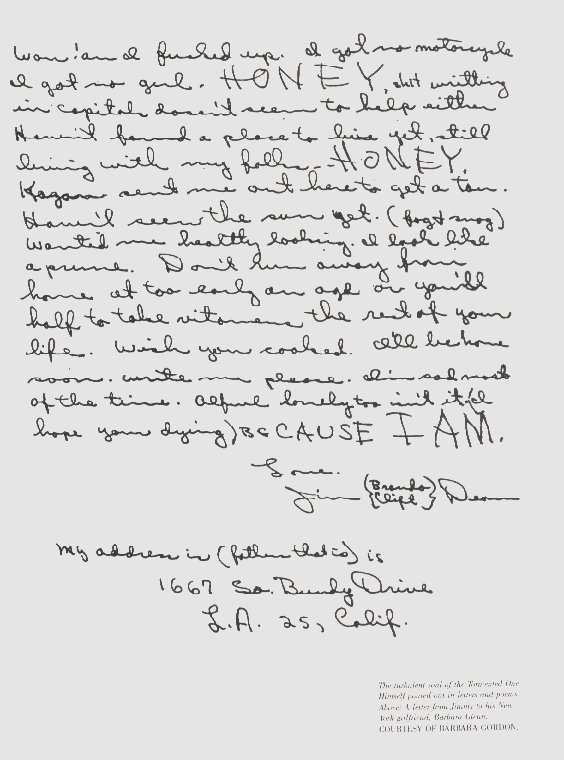 Wow! am I fucked up. I got no motorcycle
I got no girl. HONEY, shit writting
in capitals doesn't seem to help either
Haven't found a place to live yet. still
living with my folks -- HONEY.
Kazan sent me out here to get a tan.
Haven't seen the sun yet. (fog & smog)
wanted me healthy looking. I look like
a prune. Don't run away from
home at too early an age or you'll
half to take vitamens the rest of your
life. Wish you cooked. I'll be home
soon. write me please. I'm sad most
of the time. Awful lonely too isn't it (I
hope your dying) BECAUSE I AM.
Love.
Jim (Brando Clift) Dean
My address is (father that is) is
1667 So. Bundy Drive
L.A. 25, Calif.
The turbulent soul of the Tormented One
Himself poured out in letters and poems
Above: A letter from Jimmy to his New
York girlfriend, Barbara Glenn.
COURTESY OF BARBARA GORDON.